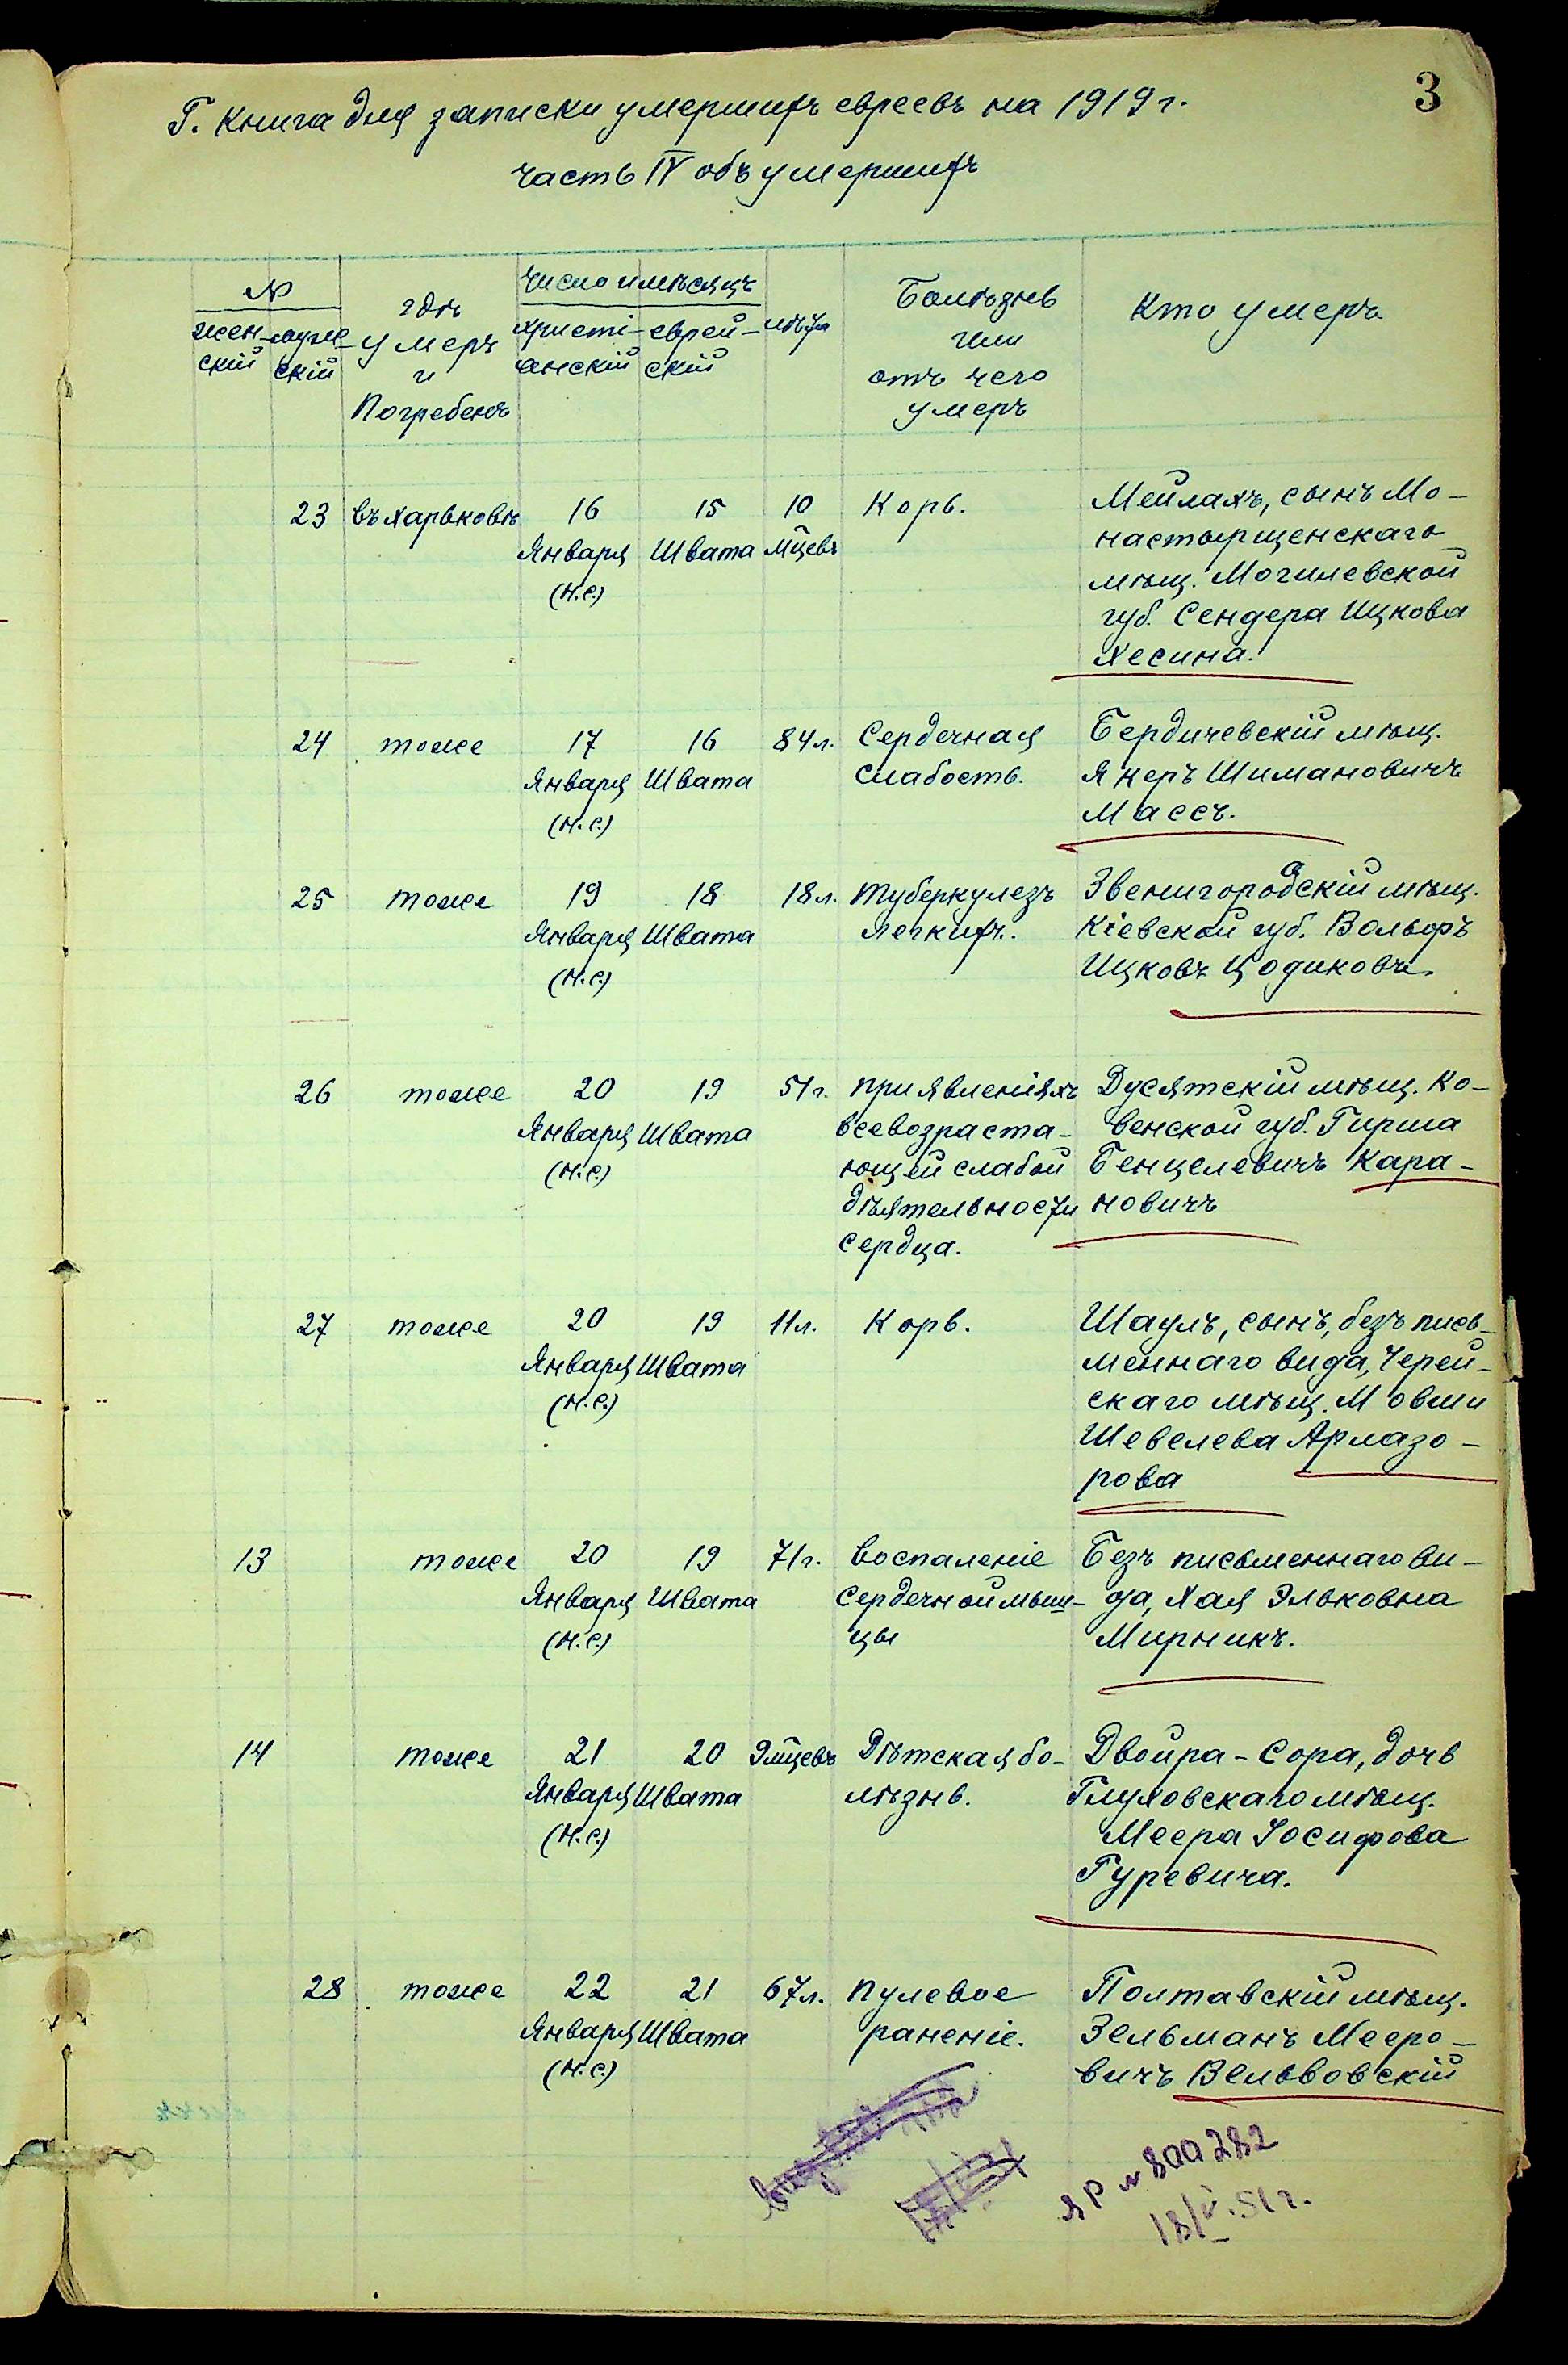 3
Г. Книга для записки умершихъ евреевъ на 1919 г.
часть IV объ умершихъ
№
женскій
мужескій
гдѣ
умеръ
и
Погребенъ
Число и мѣсяцъ
христі-
анскій
еврей-
скій
лѣта
Болѣзнь
или
отъ чего
умеръ
Кто умеръ
23 въ Харьковѣ 16 15 10 Корь. Мейлахъ, сынъ Мо-
Января Швата мцевъ настырщенскаго
(н.с.) мѣщ. Могилевской
губ. Сендера Ицкова
Хесина.
24 тоже 17 16 84 л. Сердечная Бердичевскій мѣщ.
Января Швата слабость. Янкеръ Шимановичъ
(н.с.) Массъ.
25 тоже 19 18 18 л. Туберкулезъ Звенигородскій мѣщ.
Января Швата легкихъ. Кіевской губ. Вольфъ
(н.с.) Ицковъ Цодиковъ.
26 тоже 20 19 51 г. При явленіяхъ Дусятскій мѣщ. Ко-
Января Швата всевозраста- венской губ. Гирша
(н.с.) ющей слабой Бенцелевичъ Кара-
дѣятельности новичъ
сердца.
27 тоже 20 19 11 л. Корь. Шаулъ, сынъ, безъ пись-
Января Швата меннаго вида, Черей-
(н.с.) скаго мѣщ. Мовши
Шевелева Армазо-
рова
13 тоже 20 19 71 г. воспаленіе Безъ письменнаго ви-
Января Швата сердечной мыш- да, Хая Эльковна
(н.с.) цы Мирникъ.
14 тоже 21 20 9 мцевъ Дѣтская бо- Двойра-Сора, дочь
Января Швата лѣзнь. Глуховскаго мѣщ.
(н.с.) Меера Іосифова
Гуревича.
28 тоже 22 21 67 л. Пулевое Полтавскій мѣщ.
Января Швата раненіе. Зельманъ Мееро-
(н.с.) вичъ Вельвовскій
ЯР № 800282
18/V.51 г.